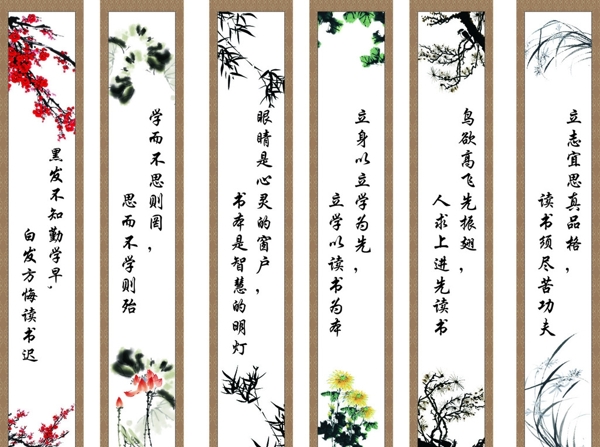 黑发不知勤学早，
白发方悔读书迟
学而不思则罔，
思而不学则殆
眼睛是心灵的窗户，
书本是智慧的明灯
立身以立学为先，
立学以读书为本
鸟欲高飞先振翅，
人求上进先读书
立志宜思真品格，
读书须尽苦功夫